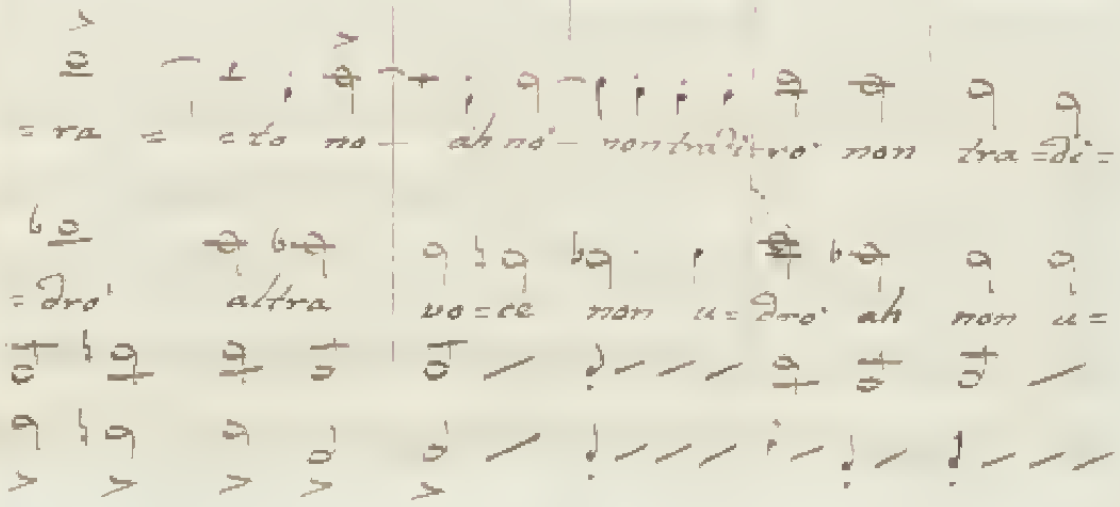 = ra = cto no - ah no' - non tradi - ro' non tra = di =
= dro' altra vo = ce non u = dro' ah non u =